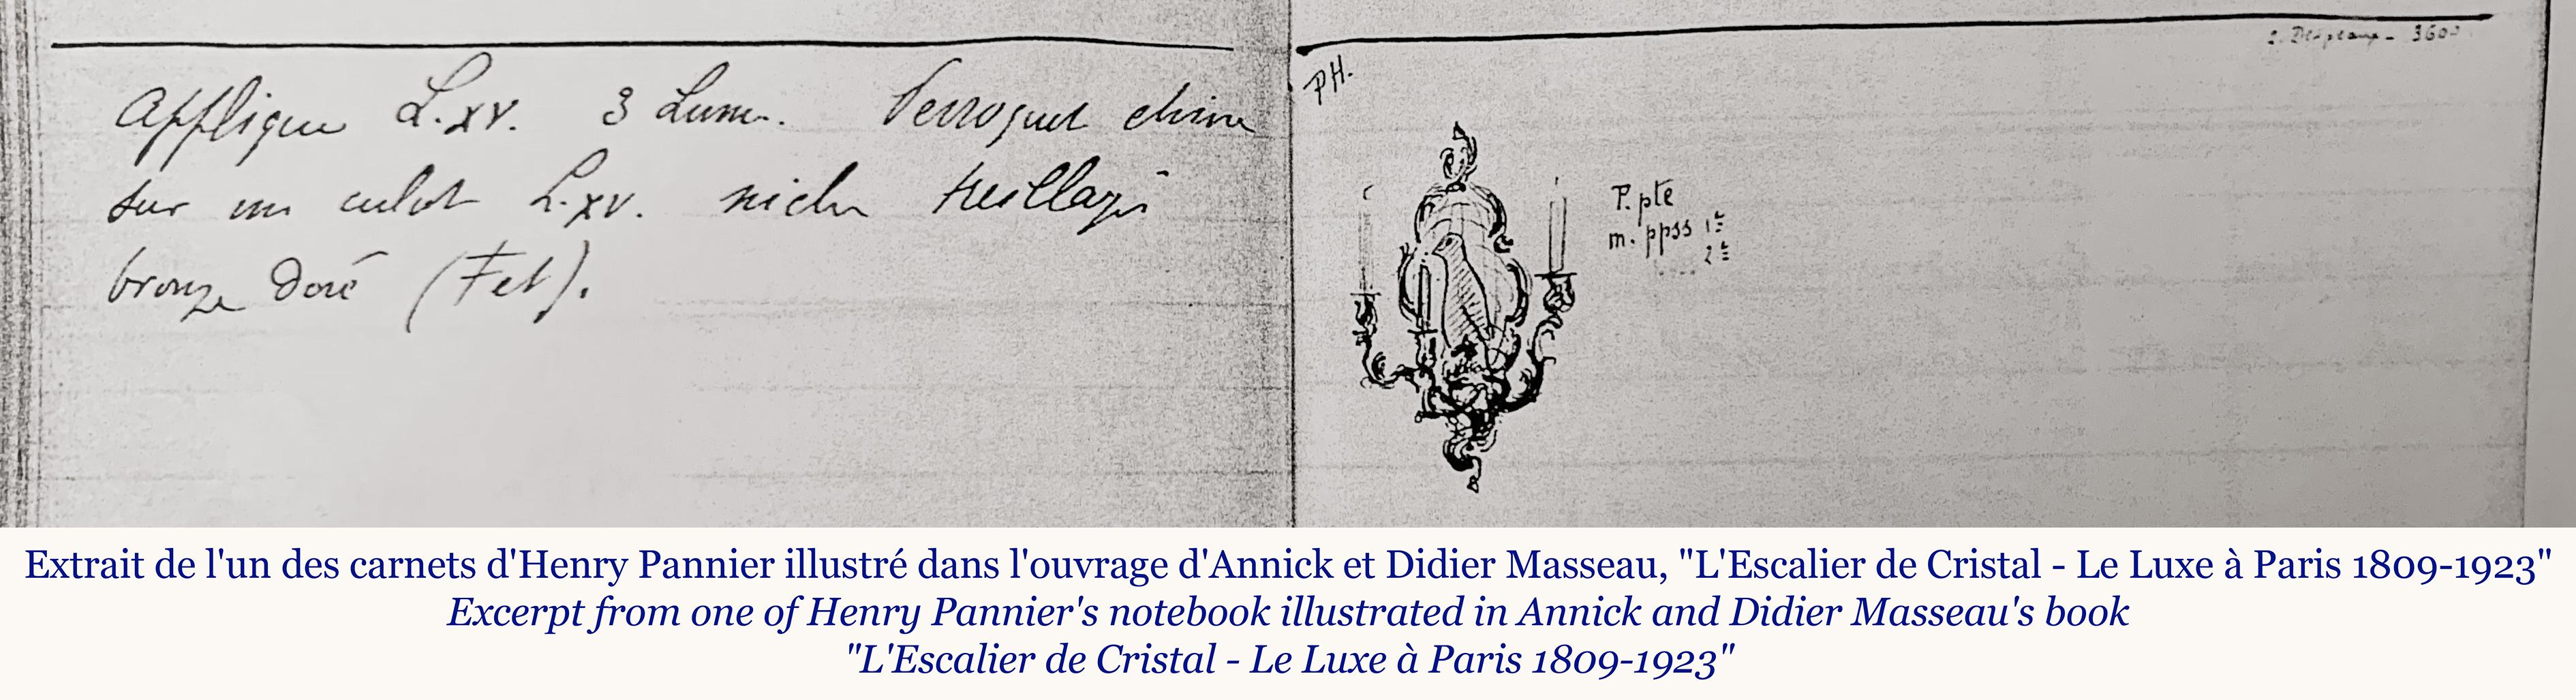 Applique L.XV. 3 Lum. Perroquet chine
sur un culot L.XV. niche treillagé
bronze doré (Fet).
PH.
P. pte
m. ppss 1e
2e
3600
Extrait de l'un des carnets d'Henry Pannier illustré dans l'ouvrage d'Annick et Didier Masseau, "L'Escalier de Cristal - Le Luxe à Paris 1809-1923"
Excerpt from one of Henry Pannier's notebook illustrated in Annick and Didier Masseau's book
"L'Escalier de Cristal - Le Luxe à Paris 1809-1923"